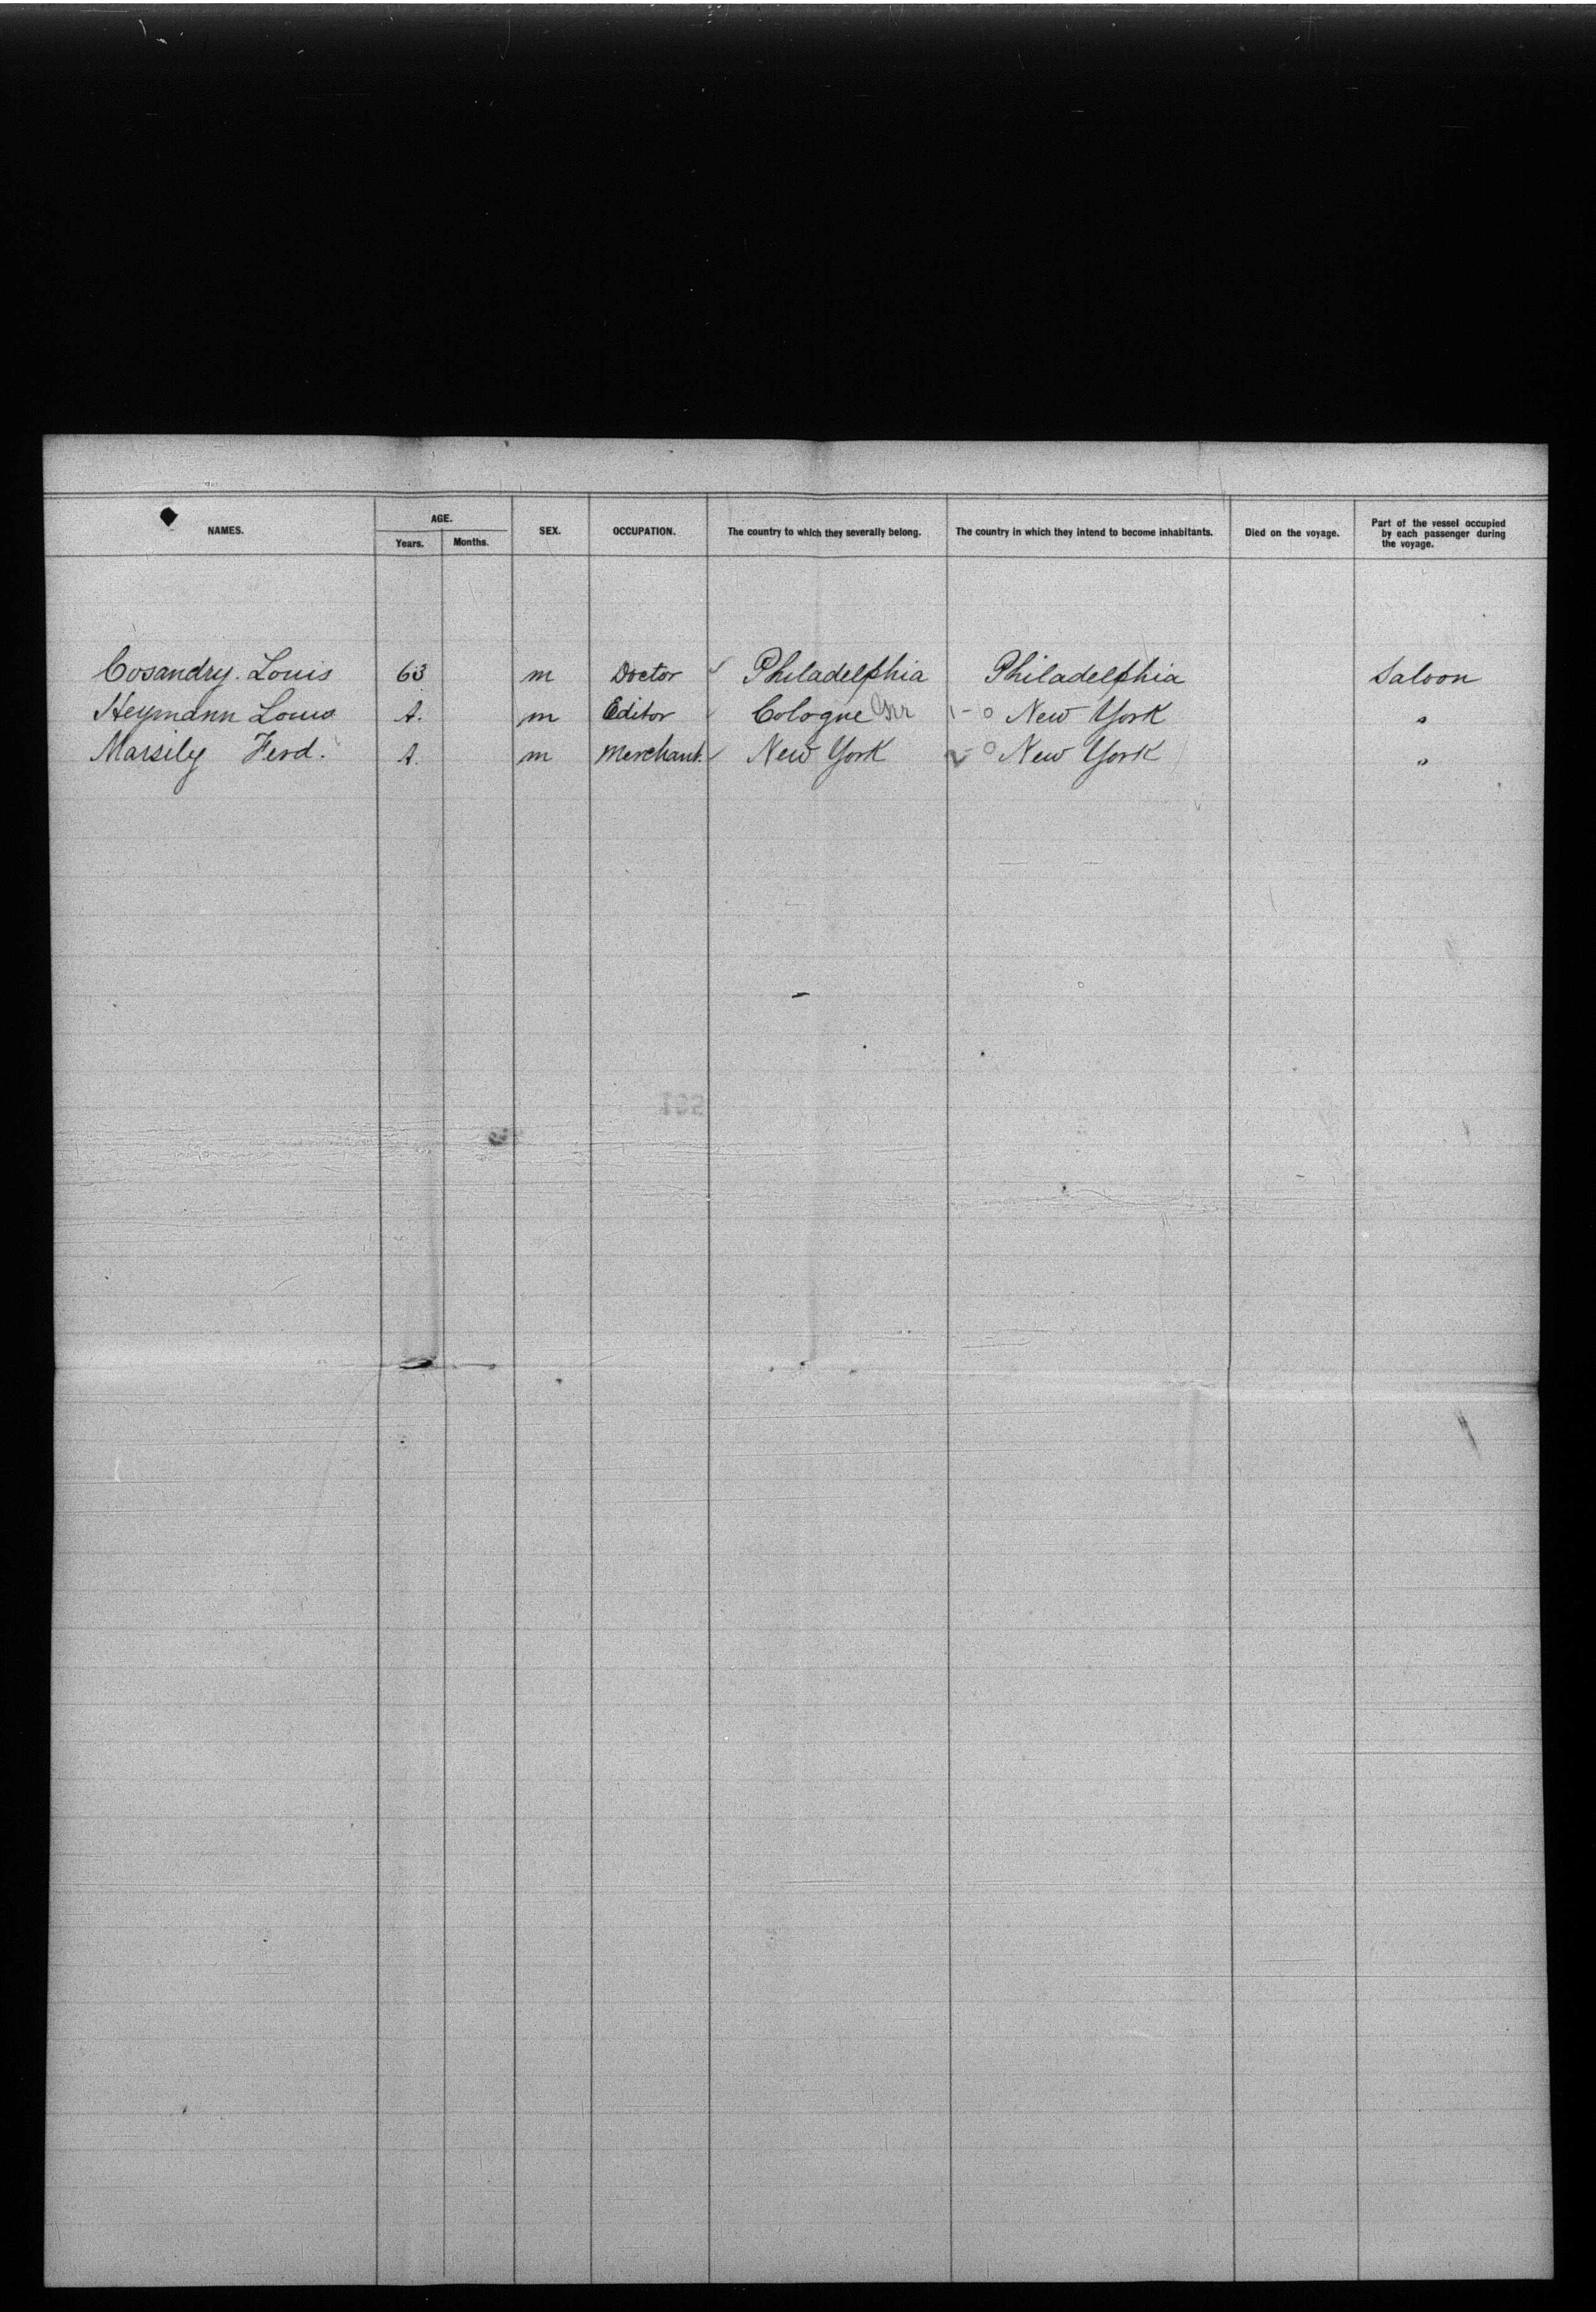 NAMES. AGE. SEX. OCCUPATION. The country to which they severally belong. The country in which they intend to become inhabitants. Died on the voyage. Part of the vessel occupied by each passenger during the voyage.
Years. Months.
Cosandry. Louis 63 m Doctor Philadelphia Philadelphia Saloon
Heymann Louis A. m Editor Cologne Ger 1-0 New York "
Marsily Ferd. A. m Merchant. New York 2-0 New York "